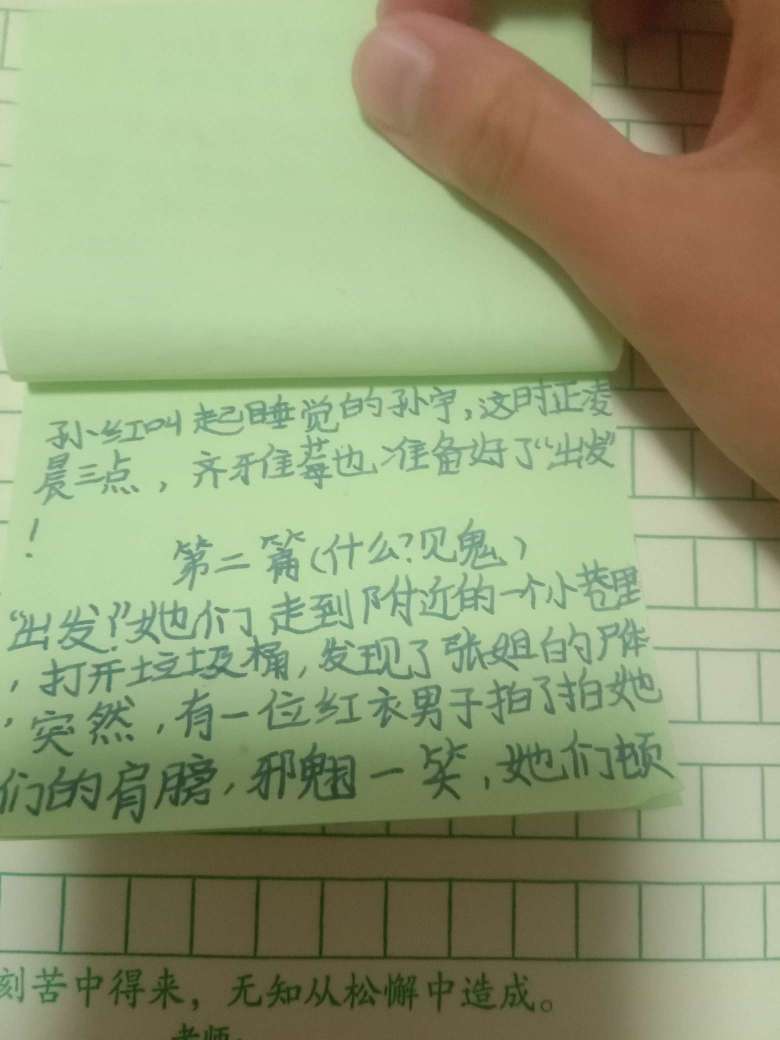 孙红叫起睡觉的孙宇，这时正凌
晨三点，齐牙佳莓也准备好了“出发”
！
第二篇(什么?见鬼)
“出发?”她们走到附近的一个小巷里
，打开垃圾桶，发现了张姐的尸体
，突然，有一位红衣男子拍了拍她
们的肩膀，邪魁一笑，她们顿
刻苦中得来，无知从松懈中造成。
老师: